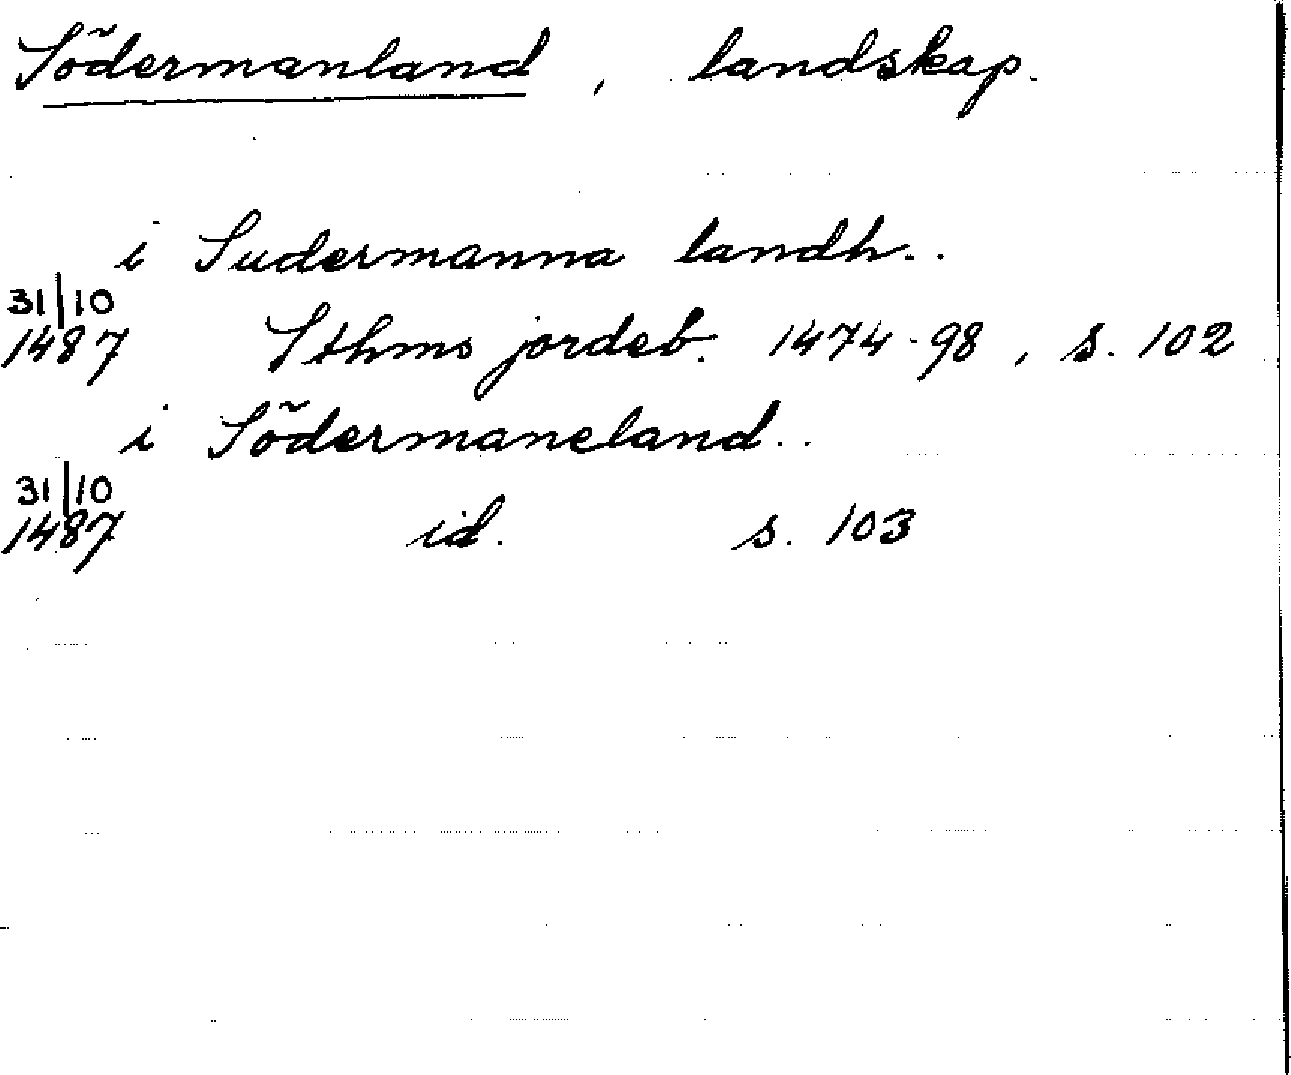 Södermanland, landskap.
i Sudermanna landh..
31/10
1487 Sthms jordeb. 1474-98, s. 102
i Södermaneland..
31/10
1487 id. s. 103